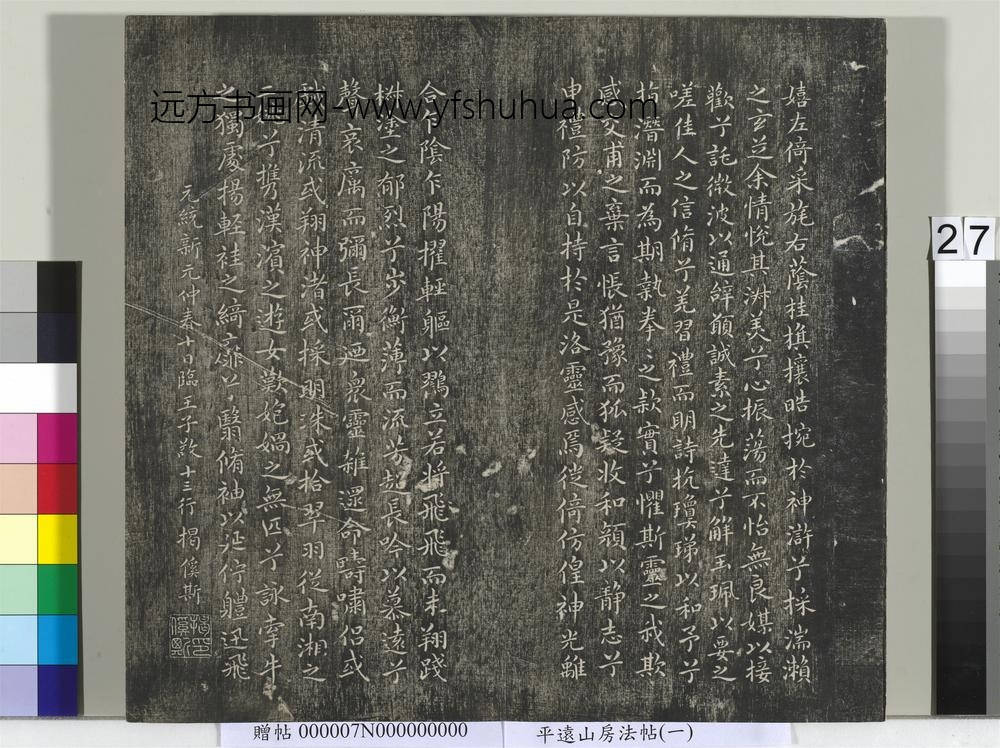 嬉左倚采旄右蔭桂旗攘晧捥於神滸兮採湍瀨
之玄芝余情悅其淑美兮心振蕩而不怡無良媒以接
歡兮託微波以通辭願誠素之先達兮解玉珮以要之
嗟佳人之信脩兮羌習禮而明詩抗瓊珶以和予兮
指潛淵而為期執拳之款實兮懼斯靈之我欺
感交甫之棄言悵猶豫而狐疑收和顏以静志兮
申禮防以自持於是洛靈感焉徙倚仿偟神光離
合乍陰乍陽擢輕軀以鶴立若將飛飛而未翔踐
椒塗之郁烈兮步衡薄而流芳超長吟以慕遠兮
聲哀厲而彌長爾迺衆靈雜遝命疇嘯侶或
戲清流或翔神渚或採明珠或拾翠羽從南湘之
二妃兮攜漢濱之遊女歎匏媧之無匹兮詠牽牛
之獨處揚輕袿之綺靡兮翳脩袖以延佇軆迅飛
元統新元仲春十日臨王子敬十三行 揭傒斯
揭印傒斯
远方书画网-www.yfshuhua.com
27
贈帖 000007N000000000
平遠山房法帖(一)